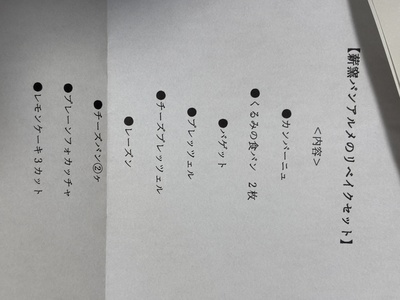 【薪窯パンアルメのリベイクセット】
＜内容＞
●カンパーニュ
●くるみの食パン 2枚
●バゲット
●プレッツェル
●チーズプレッツェル
●レーズン
●チーズパン②ヶ
●プレーンフォカッチャ
●レモンケーキ3カット